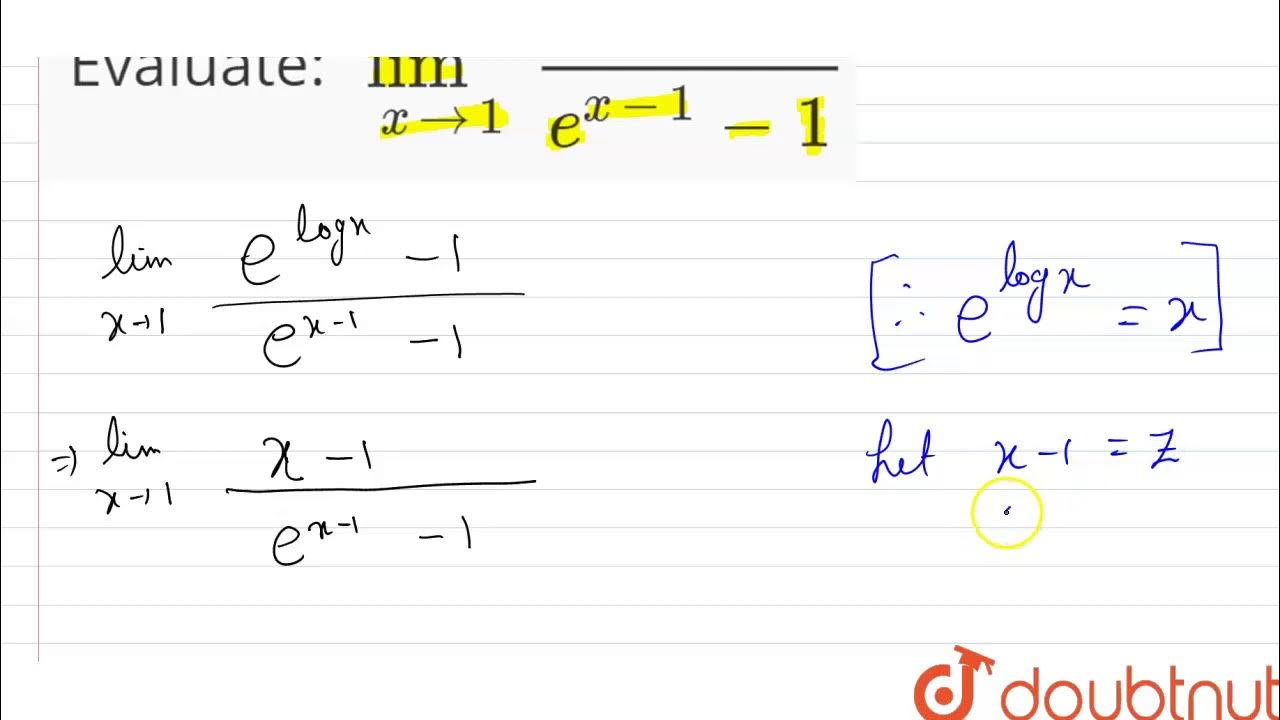 Evaluate: lim
x→1
e^{x-1} - 1
lim e^{log x} - 1
x→1 e^{x-1} - 1
[∵ e^{log x} = x]
⇒ lim x - 1
x→1 e^{x-1} - 1
Let x - 1 = z
doubtnut